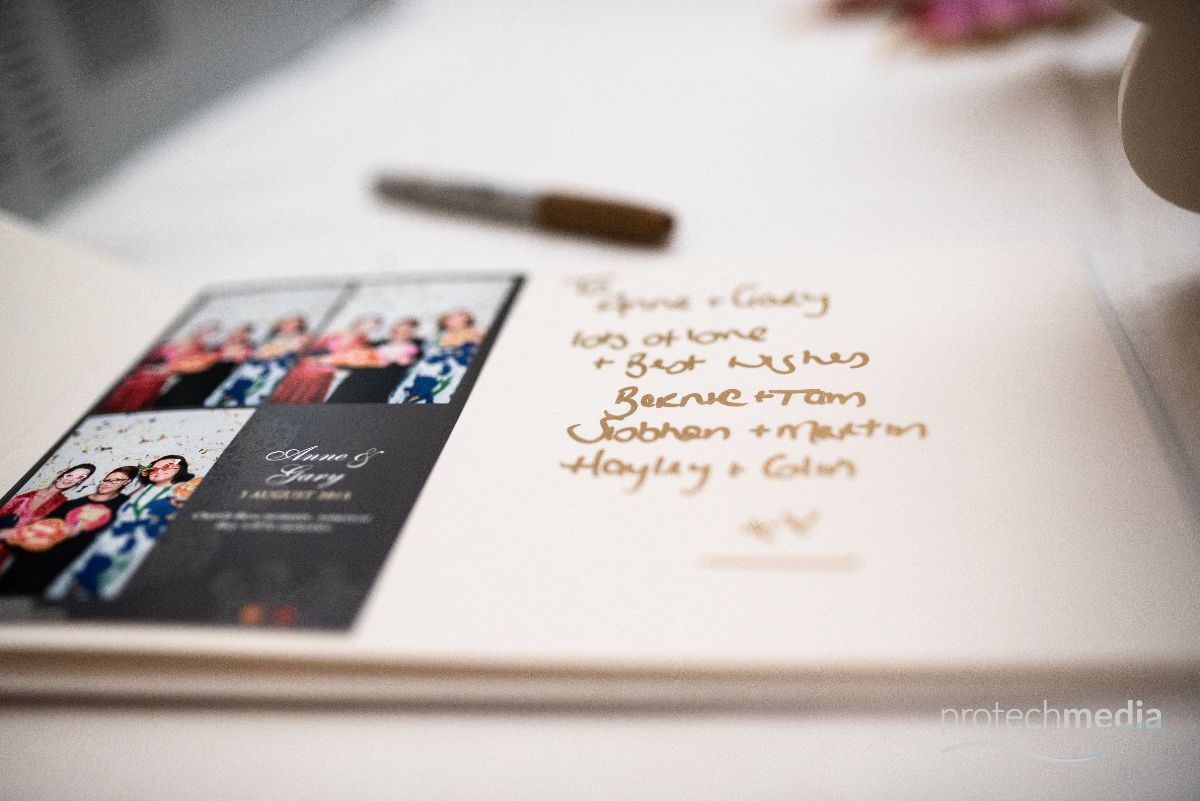 Anne &
Gary
AUGUST
To
Anne + Gary
lots of love
+ Best wishes
Bernie + Tom
Siobhan + Martin
Hayley + Colin
protechmedia